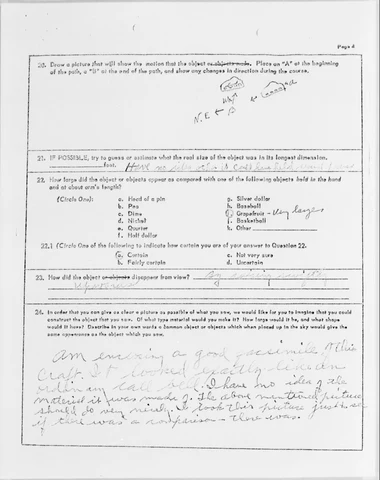 Page 4
20. Draw a picture that will show the motion that the object or objects made. Place an "A" at the beginning
of the path, a "B" at the end of the path, and show any changes in direction during the course.
N.E. B
21. IF POSSIBLE, try to guess or estimate what the real size of the object was in its longest dimension.
feet. Have no idea
22. How large did the object or objects appear as compared with one of the following objects held in the hand
and at about arm's length?
(Circle One):
a. Head of a pin
b. Pea
c. Dime
d. Nickel
e. Quarter
f. Half dollar
g. Silver dollar
h. Baseball
i. Grapefruit - very large
j. Basketball
k. Other
22.1 (Circle One of the following to indicate how certain you are of your answer to Question 22.
a. Certain
b. Fairly certain
c. Not very sure
d. Uncertain
23. How did the object or objects disappear from view? By
upwards
24. In order that you can give as clear a picture as possible of what you saw, we would like for you to imagine that you could
construct the object that you saw. Of what type material would you make it? How large would it be, and what shape
would it have? Describe in your own words a common object or objects which when placed up in the sky would give the
same appearance as the object which you saw.
Am enclosing a good facsimile of this
craft. It looked exactly like an
ordinary I have no idea of the
material it was made of. The above mentioned picture
should do very nicely. I took this picture just to see
if there was a comparison - there was.